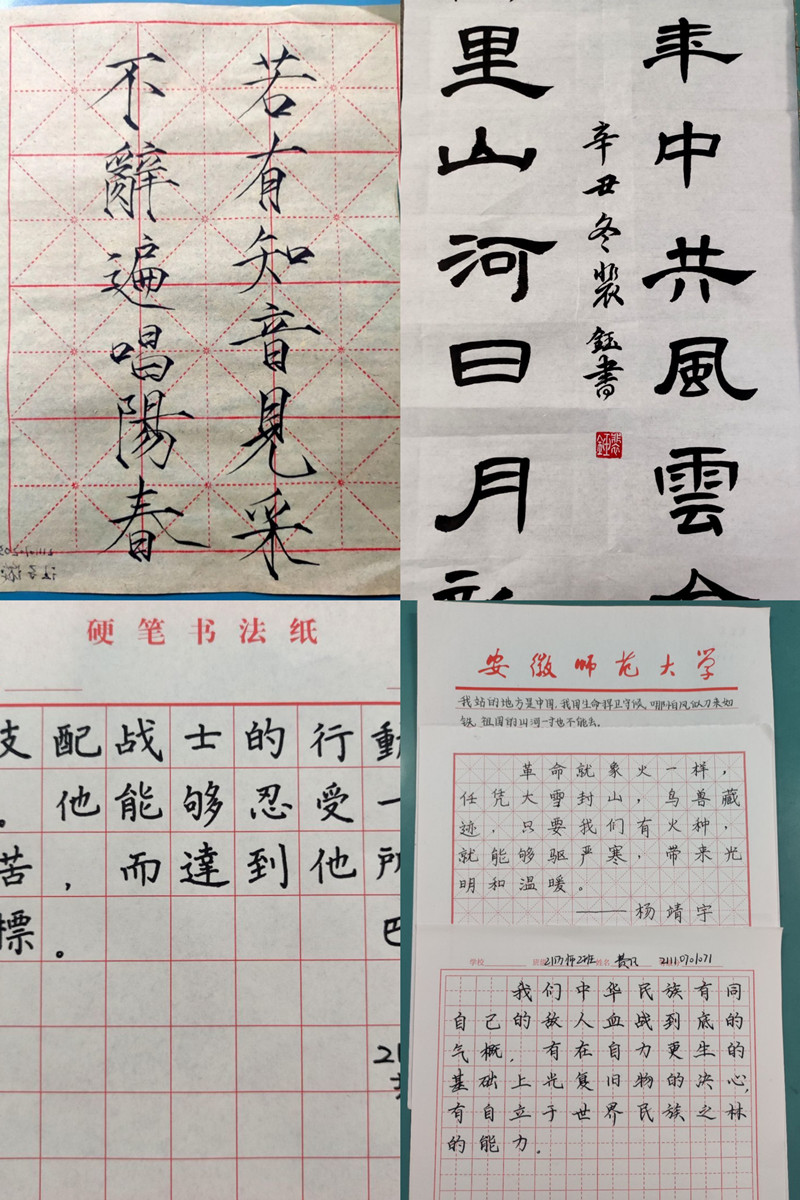 若有知音見采
不辭遍唱陽春
年中共風雲
辛丑冬裴鈺書
里山河日月
硬笔书法纸
支配战士的行動
。他能够忍受一
苦，而達到他所
標。
安徽师范大学
我站的地方是中国，我用生命捍卫守候，哪怕风似刀来如
铁，祖国的山河一寸也不能丢。
革命就象火一样，
任凭大雪封山，鸟兽藏
迹，只要我们有火种，
就能够驱严寒，带来光
明和温暖。
——杨靖宇
学校 班级 姓名 21110701071
我们中华民族有同
自己的敌人血战到底的
气概，有在自力更生的
基础上光复旧物的决心，
有自立于世界民族之林
的能力。